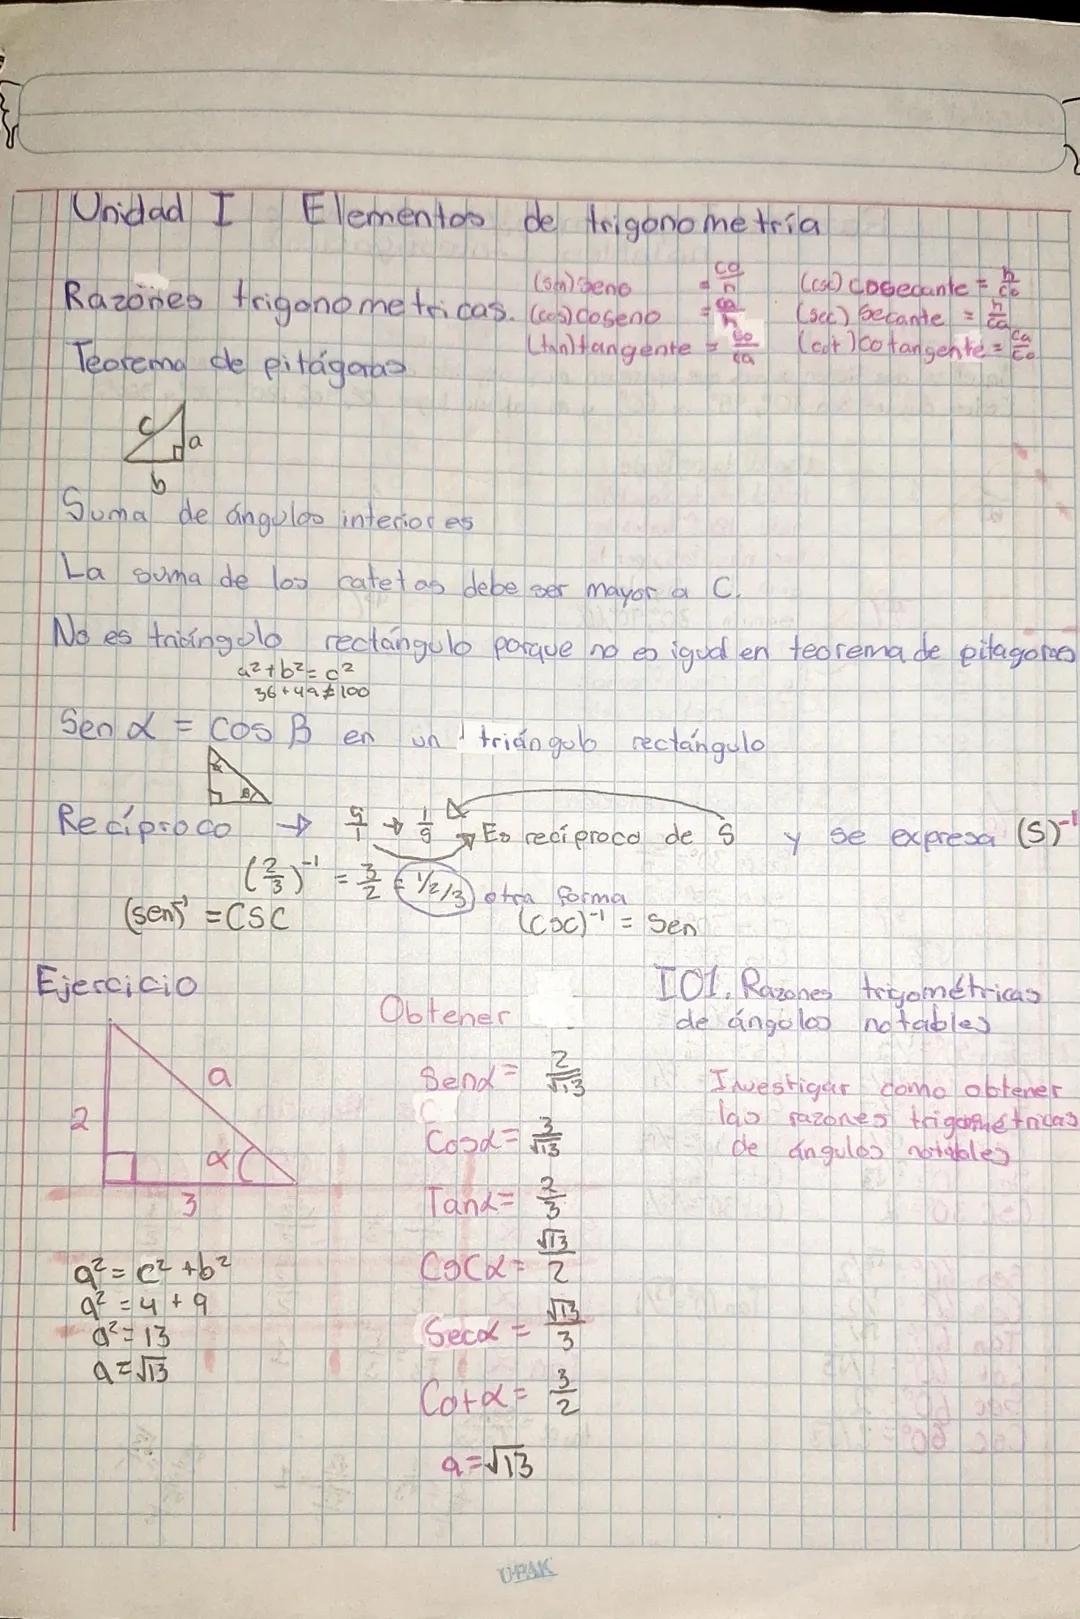 Unidad I Elementos de trigonometría
Razones trigonometricas.
(sin) seno = co/h
(cos) coseno = ca/h
(tan) tangente = co/ca
(csc) cosecante = h/co
(sec) secante = h/ca
(cot) cotangente = ca/co
Teorema de pitágoras
c a
b
Suma de ángulos interiores
La suma de los catetos debe ser mayor a C.
No es triángulo rectángulo porque no es igual en teorema de pitagoras
a² + b² = c²
36 + 49 ≠ 100
Sen α = Cos β en un triángulo rectángulo
α β
Recíproco → 5/1 → 1/5 Es recíproco de 5 y se expresa (5)⁻¹
(2/3)⁻¹ = 3/2 = 1/2/3 otra forma
(sen)⁻¹ = CSC (CSC)⁻¹ = Sen
Ejercicio
2 a α
3
a² = c² + b²
a² = 4 + 9
a² = 13
a = √13
Obtener
Senα = 2/√13
Cosα = 3/√13
Tanα = 2/3
CsCα = √13/2
Secα = √13/3
Cotα = 3/2
a = √13
I01. Razones trigométricas
de ángulos notables
Investigar como obtener
las razones trigométricas
de ángulos notables
UPAK